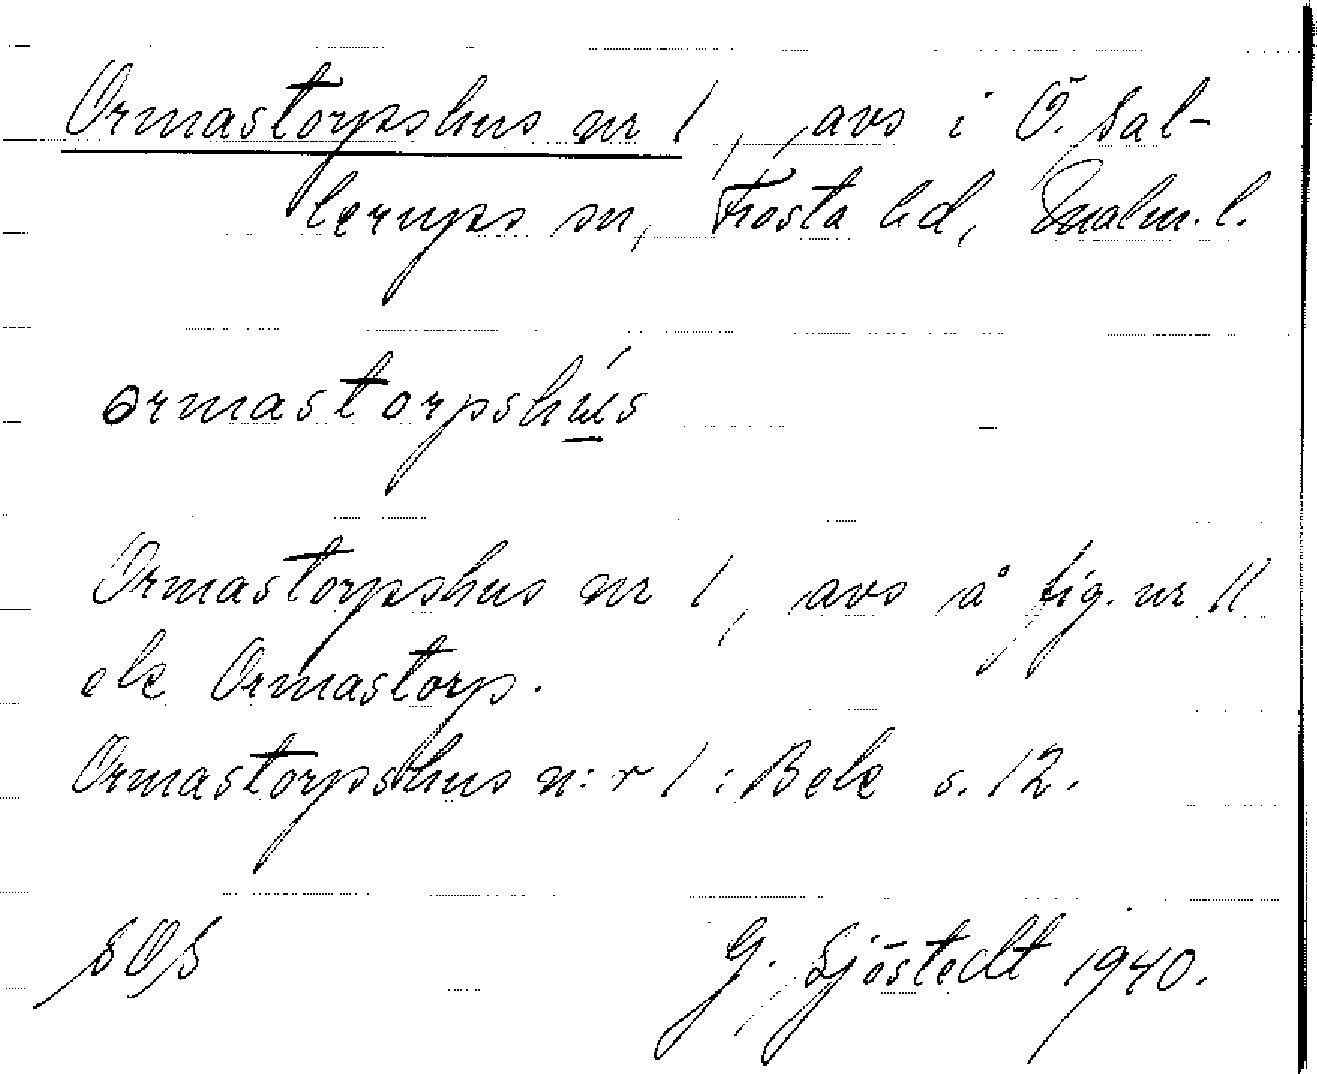 Ormastorpshus nr 1, avs i Ö. Sal-
lerups sn, Frosta hd, Malm. l.
ormastorpshús
Ormastorpshus nr 1, avs å fig. nr 11
ek Ormastorp.
Ormastorpshus n:r 1 : Bek s. 12.
SOS
G. Sjöstedt 1940.